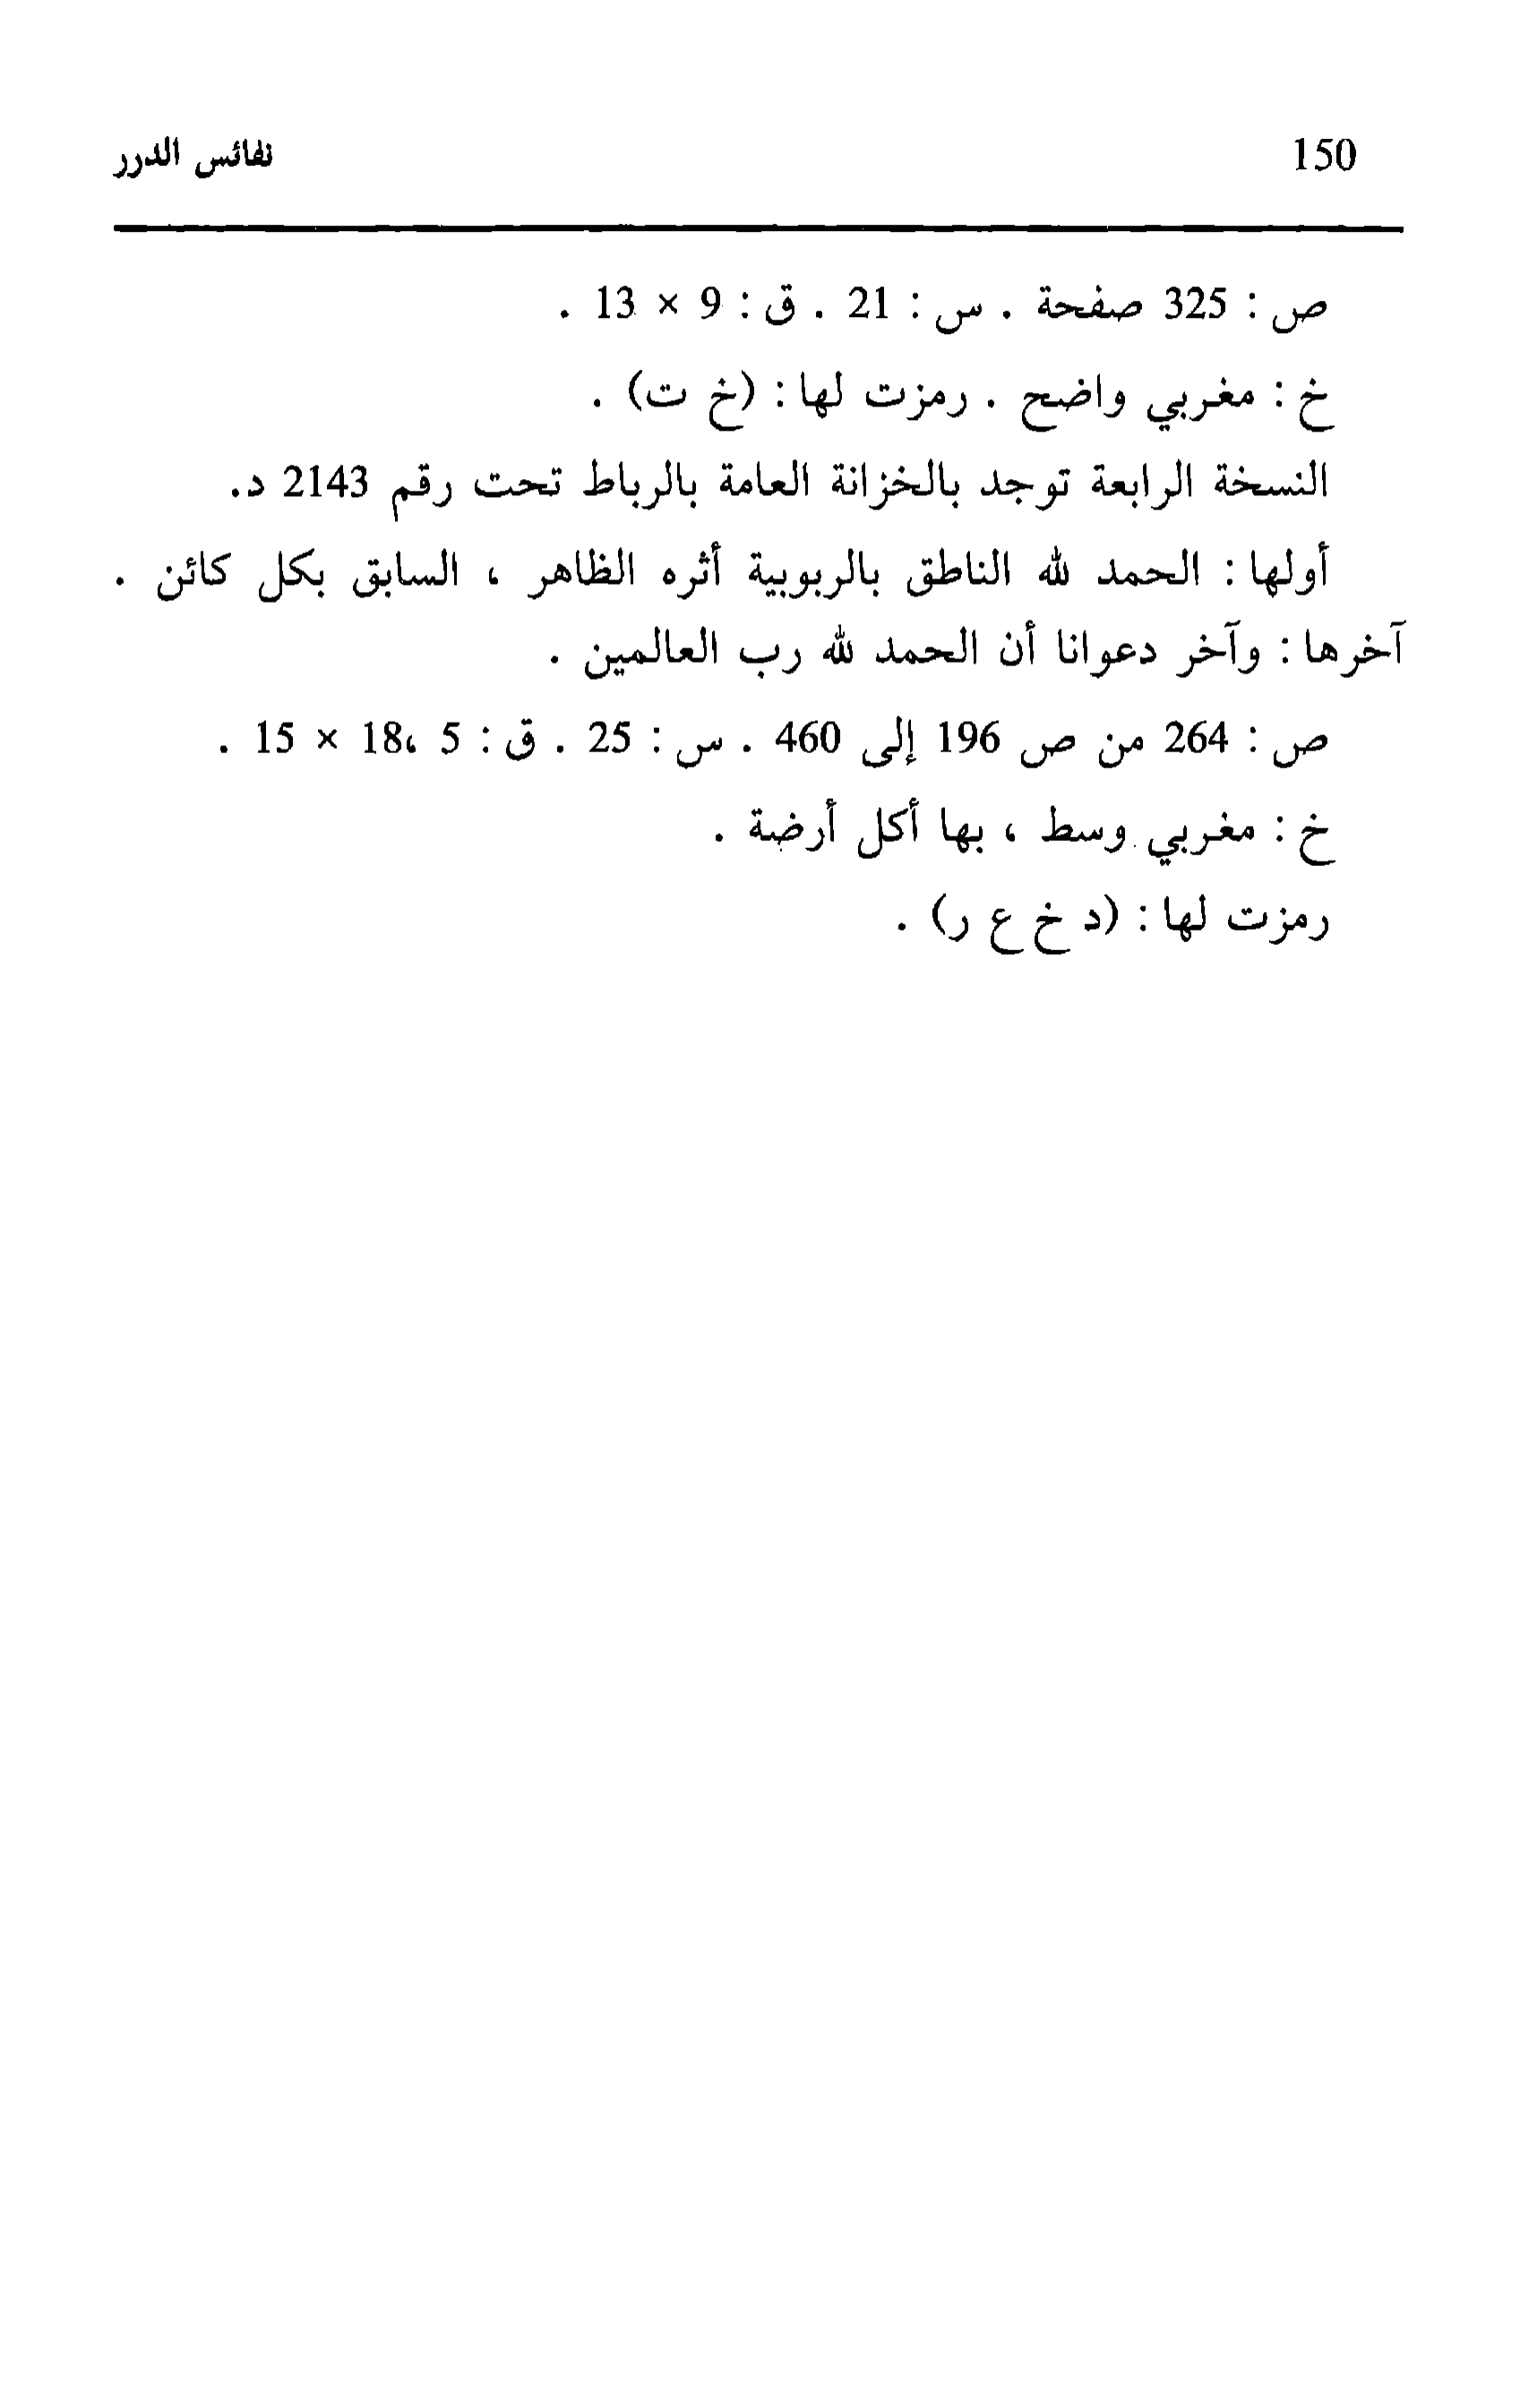 150 نفائس الدرر
ص : 325 صفحة . س : 21 . ق : 9 × 13 .
خ : مغربي واضح . رمزت لها : (خ ت) .
النسخة الرابعة توجد بالخزانة العامة بالرباط تحت رقم 2143 د.
أولها : الحمد لله الناطق بالربوبية أثره الظاهر ، السابق بكل كائن .
آخرها : وآخر دعوانا أن الحمد لله رب العالمين .
ص : 264 من ص 196 إلى 460 . س : 25 . ق : 5 ،18 × 15 .
خ : مغربي وسط ، بها أكل أرضة .
رمزت لها : (د خ ع ر) .